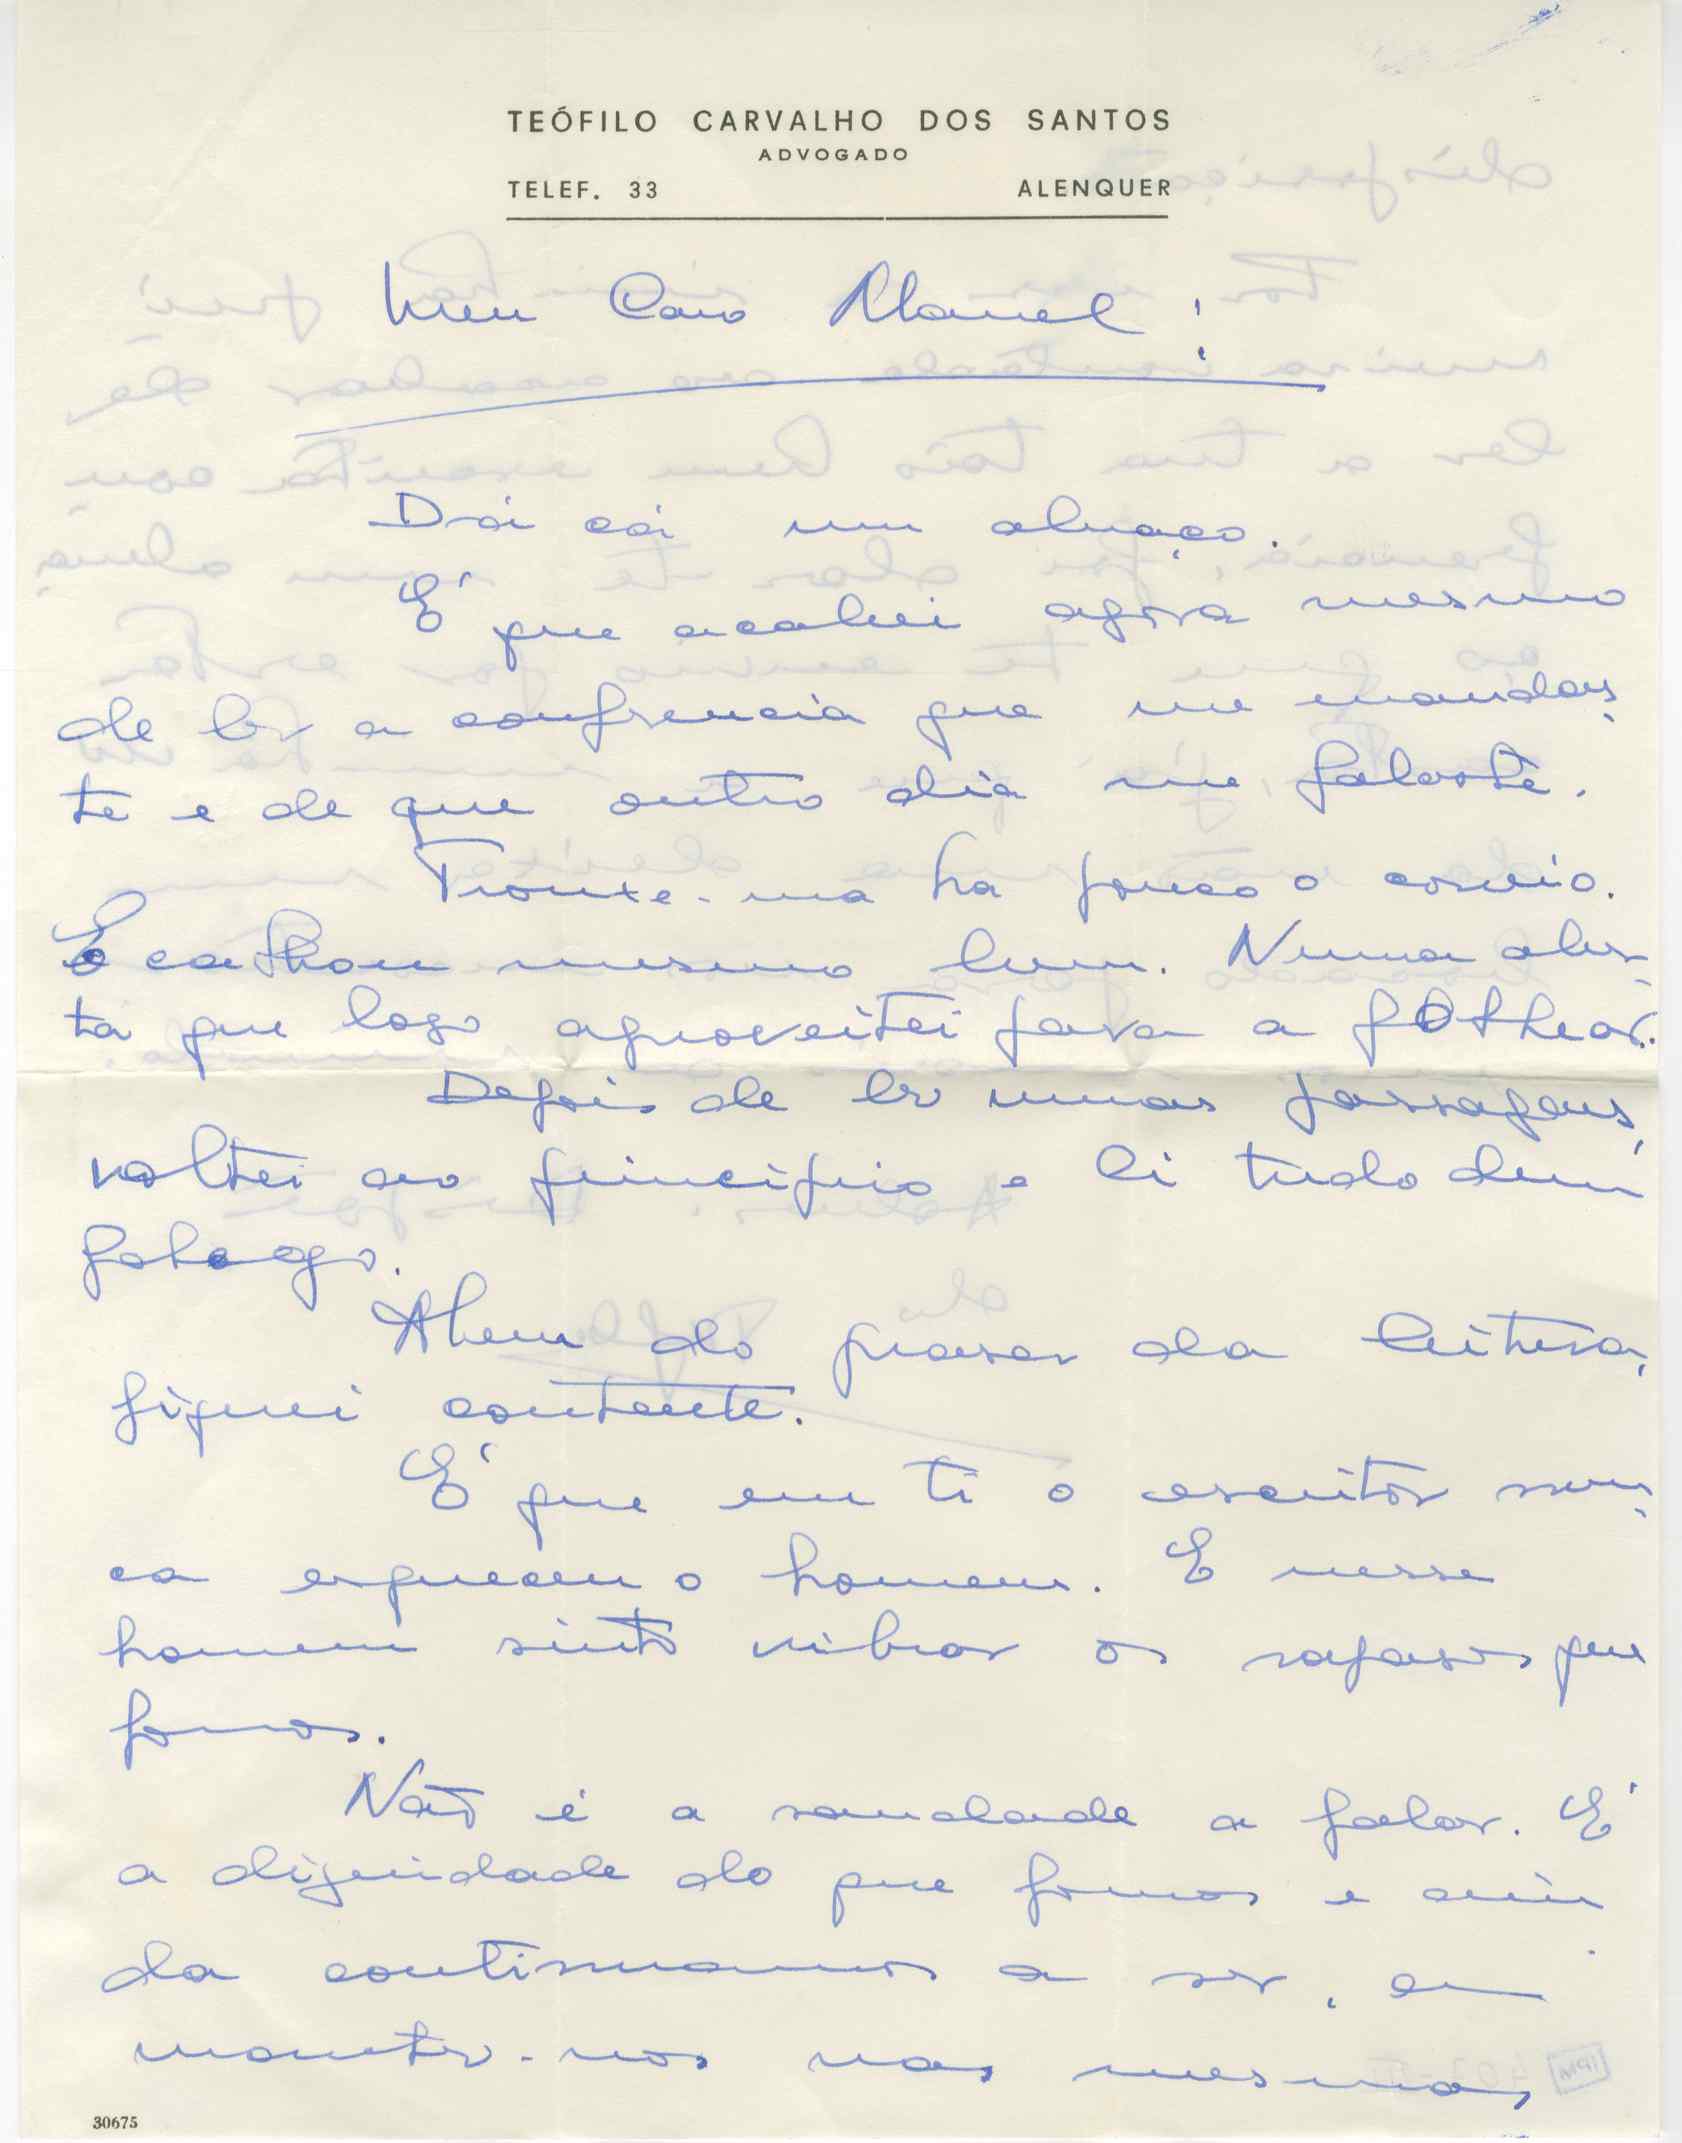 TEÓFILO CARVALHO DOS SANTOS
ADVOGADO
TELEF. 33 ALENQUER
Meu Caro Manuel!
Dái cá um abraço.
É que acabei agora mesmo
de ler a confrencia que me mandas-
te e de que outro dia me falaste.
Trouxe-ma ha pouco o correio.
E calhou mesmo bem. Numa aber-
ta que logo aproveitei para a folhear.
Depois de ler umas passagens,
voltei ao principio e li tudo dum
folego.
Alem do praser da leitura,
fiquei contente.
É que em ti o escritor nun-
ca esqueceu o homem. E nesse
homem sinto vibrar os rapases que
fomos.
Não é a saudade a falar. É
a dignidade do que fomos e ain
da continuamos a ser, em
manter-nos nas mesmas
30675